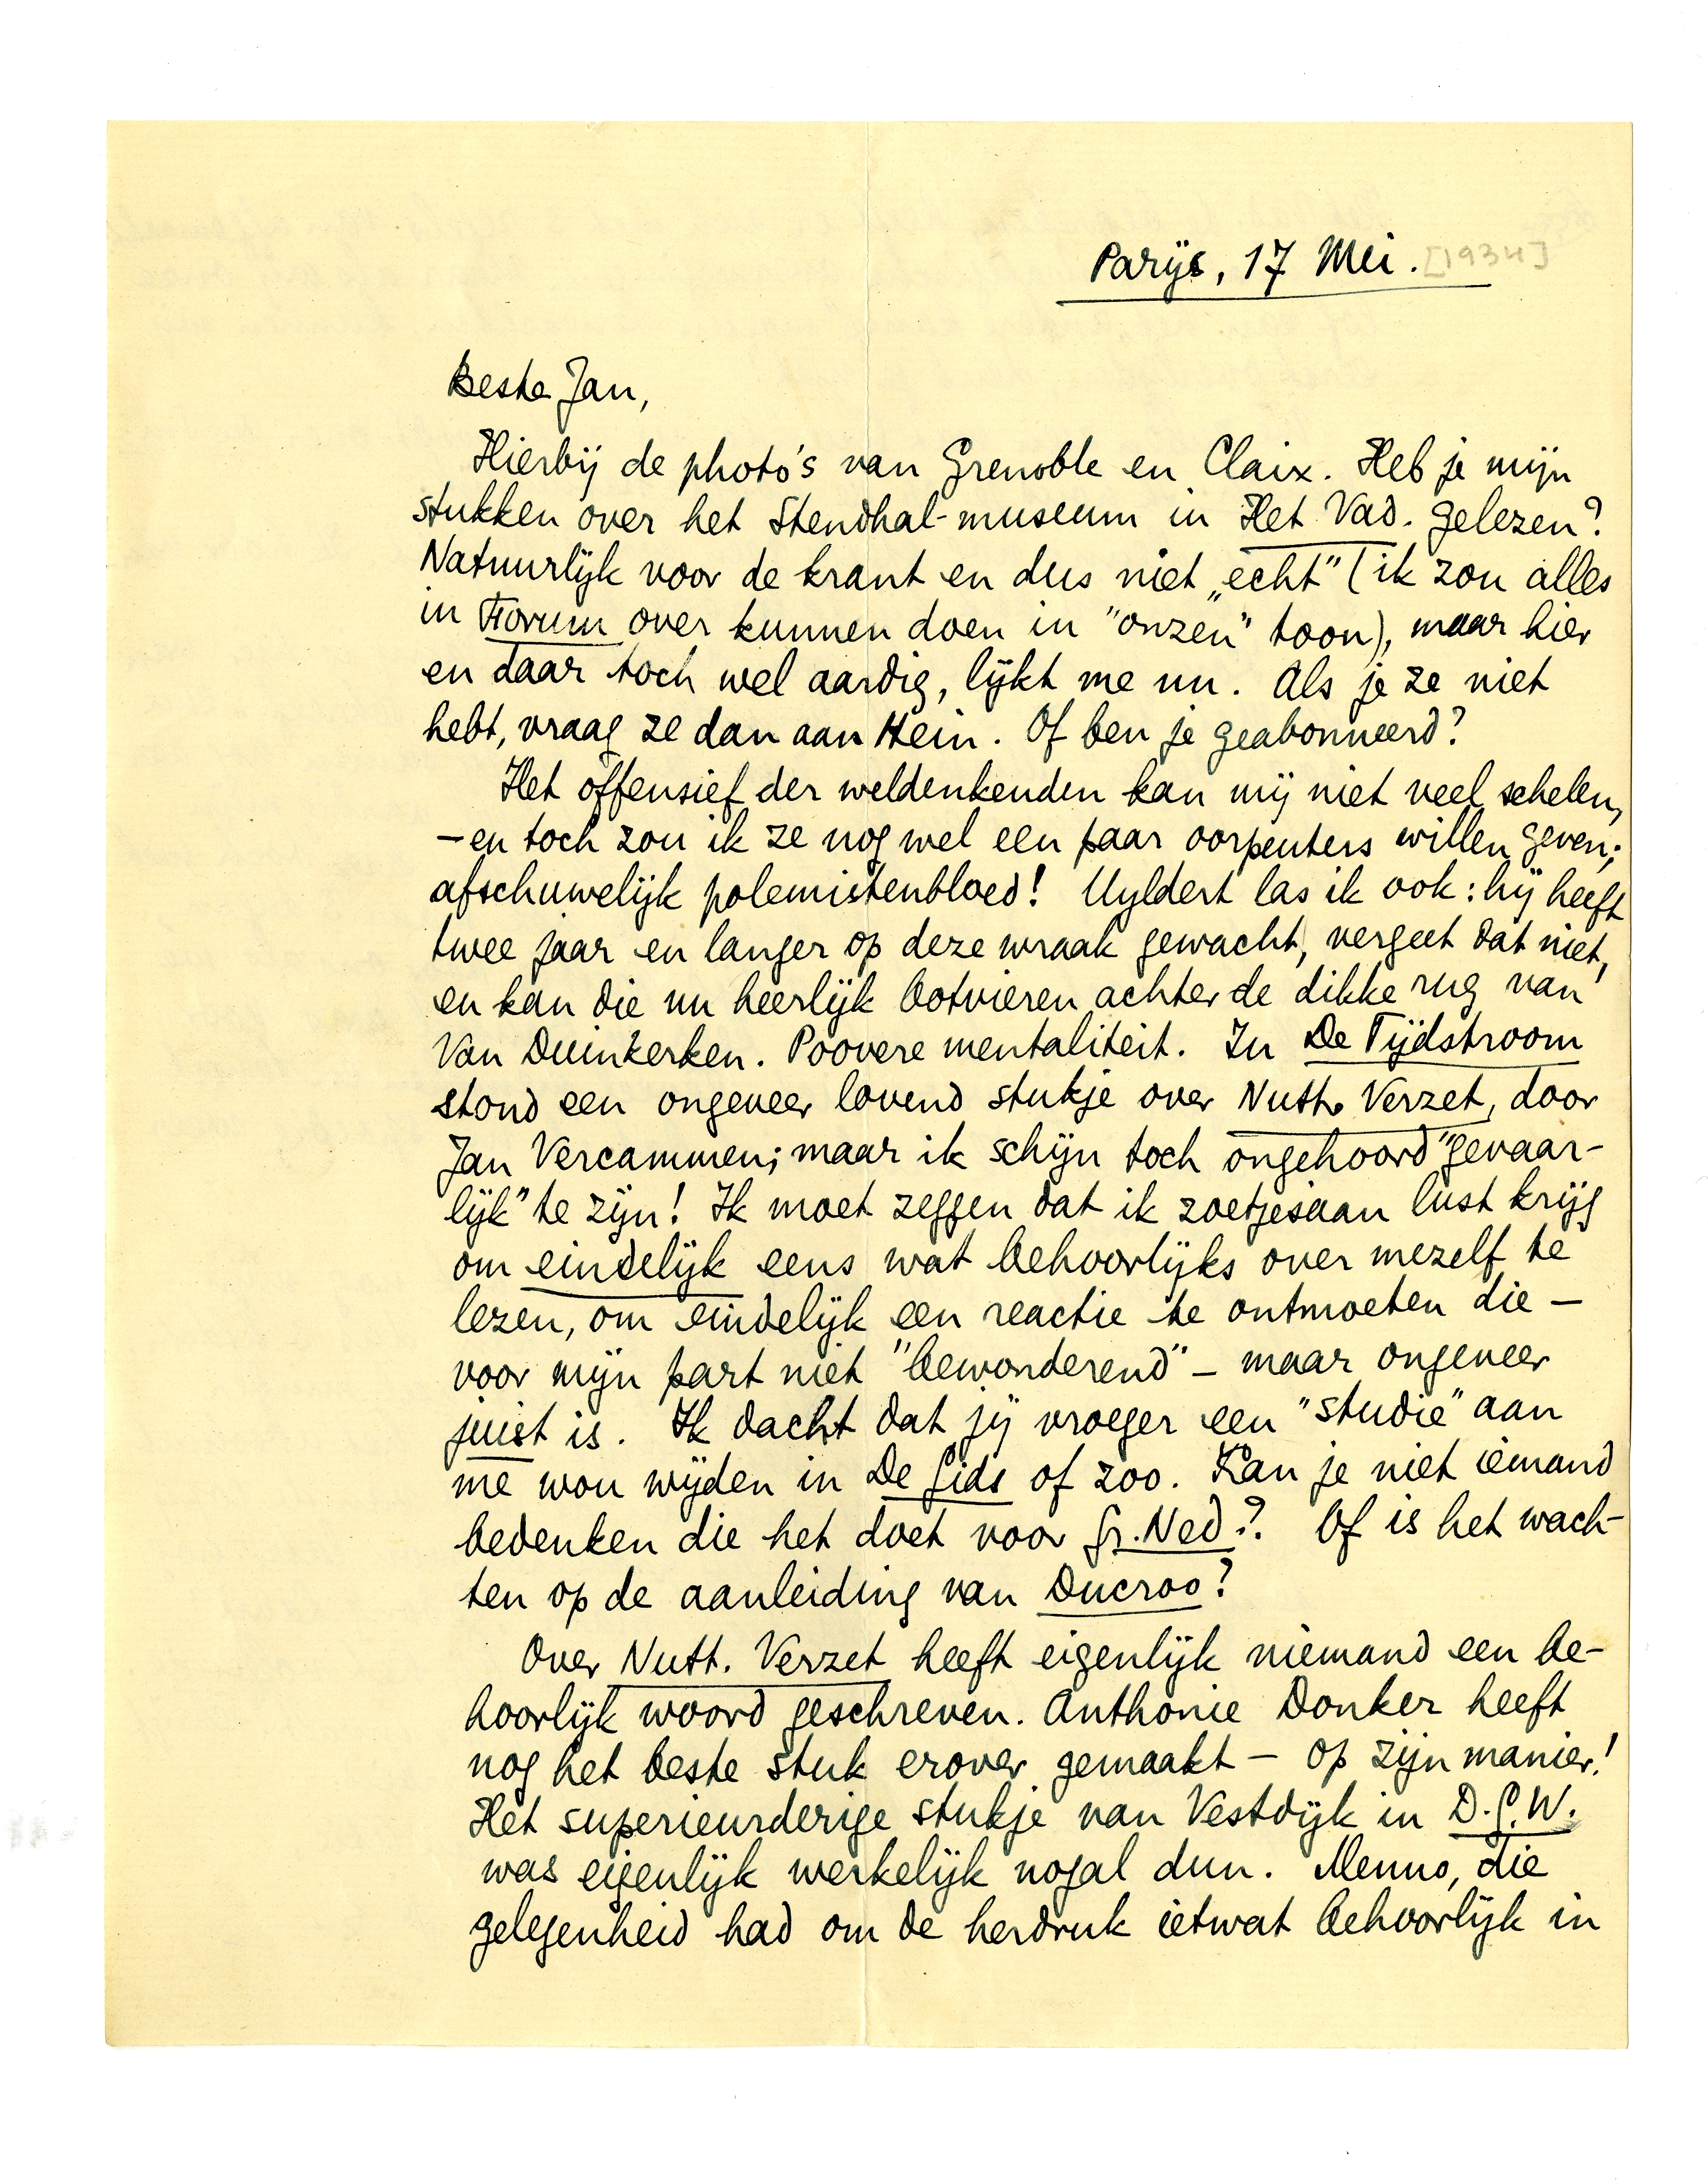 Parijs, 17 Mei. [1934]
Beste Jan,
Hierbij de photo's van Grenoble en Claix. Heb je mijn
stukken over het Stendhal-museum in Het Vad. gelezen?
Natuurlijk voor de krant en dus niet „echt” (ik zou alles
in Forum over kunnen doen in "onzen" toon), maar hier
en daar toch wel aardig, lijkt me nu. Als je ze niet
hebt, vraag ze dan aan Hein. Of ben je geabonneerd?
Het offensief der weldenkenden kan mij niet veel schelen,
– en toch zou ik ze nog wel een paar oorpeuters willen geven;
afschuwelijk polemistenbloed! Uyldert las ik ook: hij heeft
twee jaar en langer op deze wraak gewacht, vergeet dat niet,
en kan die nu heerlijk botvieren achter de dikke rug van
Van Duinkerken. Poovere mentaliteit. In De Tijdstroom
stond een ongeveer lovend stukje over Nutt. Verzet, door
Jan Vercammen; maar ik schijn toch ongehoord "gevaar-
lijk" te zijn! Ik moet zeggen dat ik zoetjesaan lust krijg
om eindelijk eens wat behoorlijks over mezelf te
lezen, om eindelijk een reactie te ontmoeten die –
voor mijn part niet "bewonderend" – maar ongeveer
juist is. Ik dacht dat jij vroeger een "studie" aan
me wou wijden in De Gids of zoo. Kan je niet iemand
bedenken die het doet voor Gr. Ned.? Of is het wach-
ten op de aanleiding van Ducroo?
Over Nutt. Verzet heeft eigenlijk niemand een be-
hoorlijk woord geschreven. Anthonie Donker heeft
nog het beste stuk erover gemaakt – op zijn manier!
Het superieurderige stukje van Vestdijk in D.G.W.
was eigenlijk werkelijk nogal dun. Menno, die
gelegenheid had om de herdruk ietwat behoorlijk in